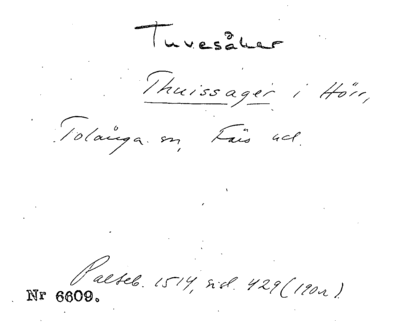 Tuvesåker
Thuissager i Hörr,
Tolånga sn, Färs hd.
Palteb. 1514, sid. 429 (190r).
Nr 6609.